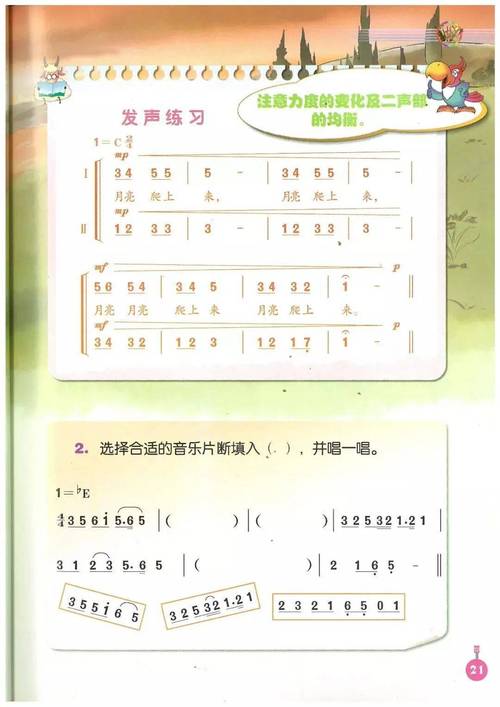 注意力度的变化及二声部
的均衡。
发声练习
1=C 2/4
mp
I 3 4 5 5 | 5 - | 3 4 5 5 | 5 - |
月亮 爬上 来， 月亮 爬上 来，
mp
II 1 2 3 3 | 3 - | 1 2 3 3 | 3 - |
mf p
5 6 5 4 | 3 4 5 | 3 4 3 2 | 1 - ‖
月亮 爬上 来 月亮 爬上 来。
mf p
3 4 3 2 | 1 2 3 | 1 2 1 7 | 1 - ‖
2. 选择合适的音乐片断填入（ ），并唱一唱。
1=♭E
4/4 3 5 6 1 5.6 5 | （ ） | （ ） | 3 2 5 3 2 1.2 1 |
3 1 2 3 5.6 5 | （ ） | 2 5 6 5 ‖
3 5 5 1 6 5
3 2 5 3 2 1.2 1
2 3 2 1 6 5 0 1
21